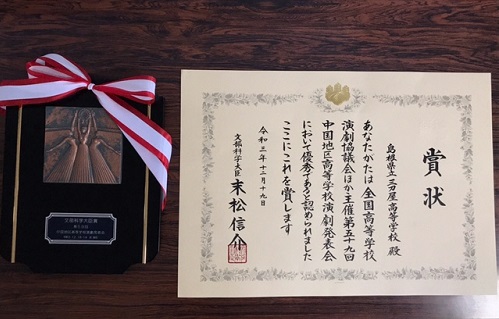 賞状
島根県立三刀屋高等学校 殿
あなたがたは全国高等学校
演劇協議会ほか主催第五十九回
中国地区高等学校演劇発表会
において優秀であると認められました
ここにこれを賞します
令和三年十二月十九日
文部科学大臣 末松信介
文部科学大臣賞